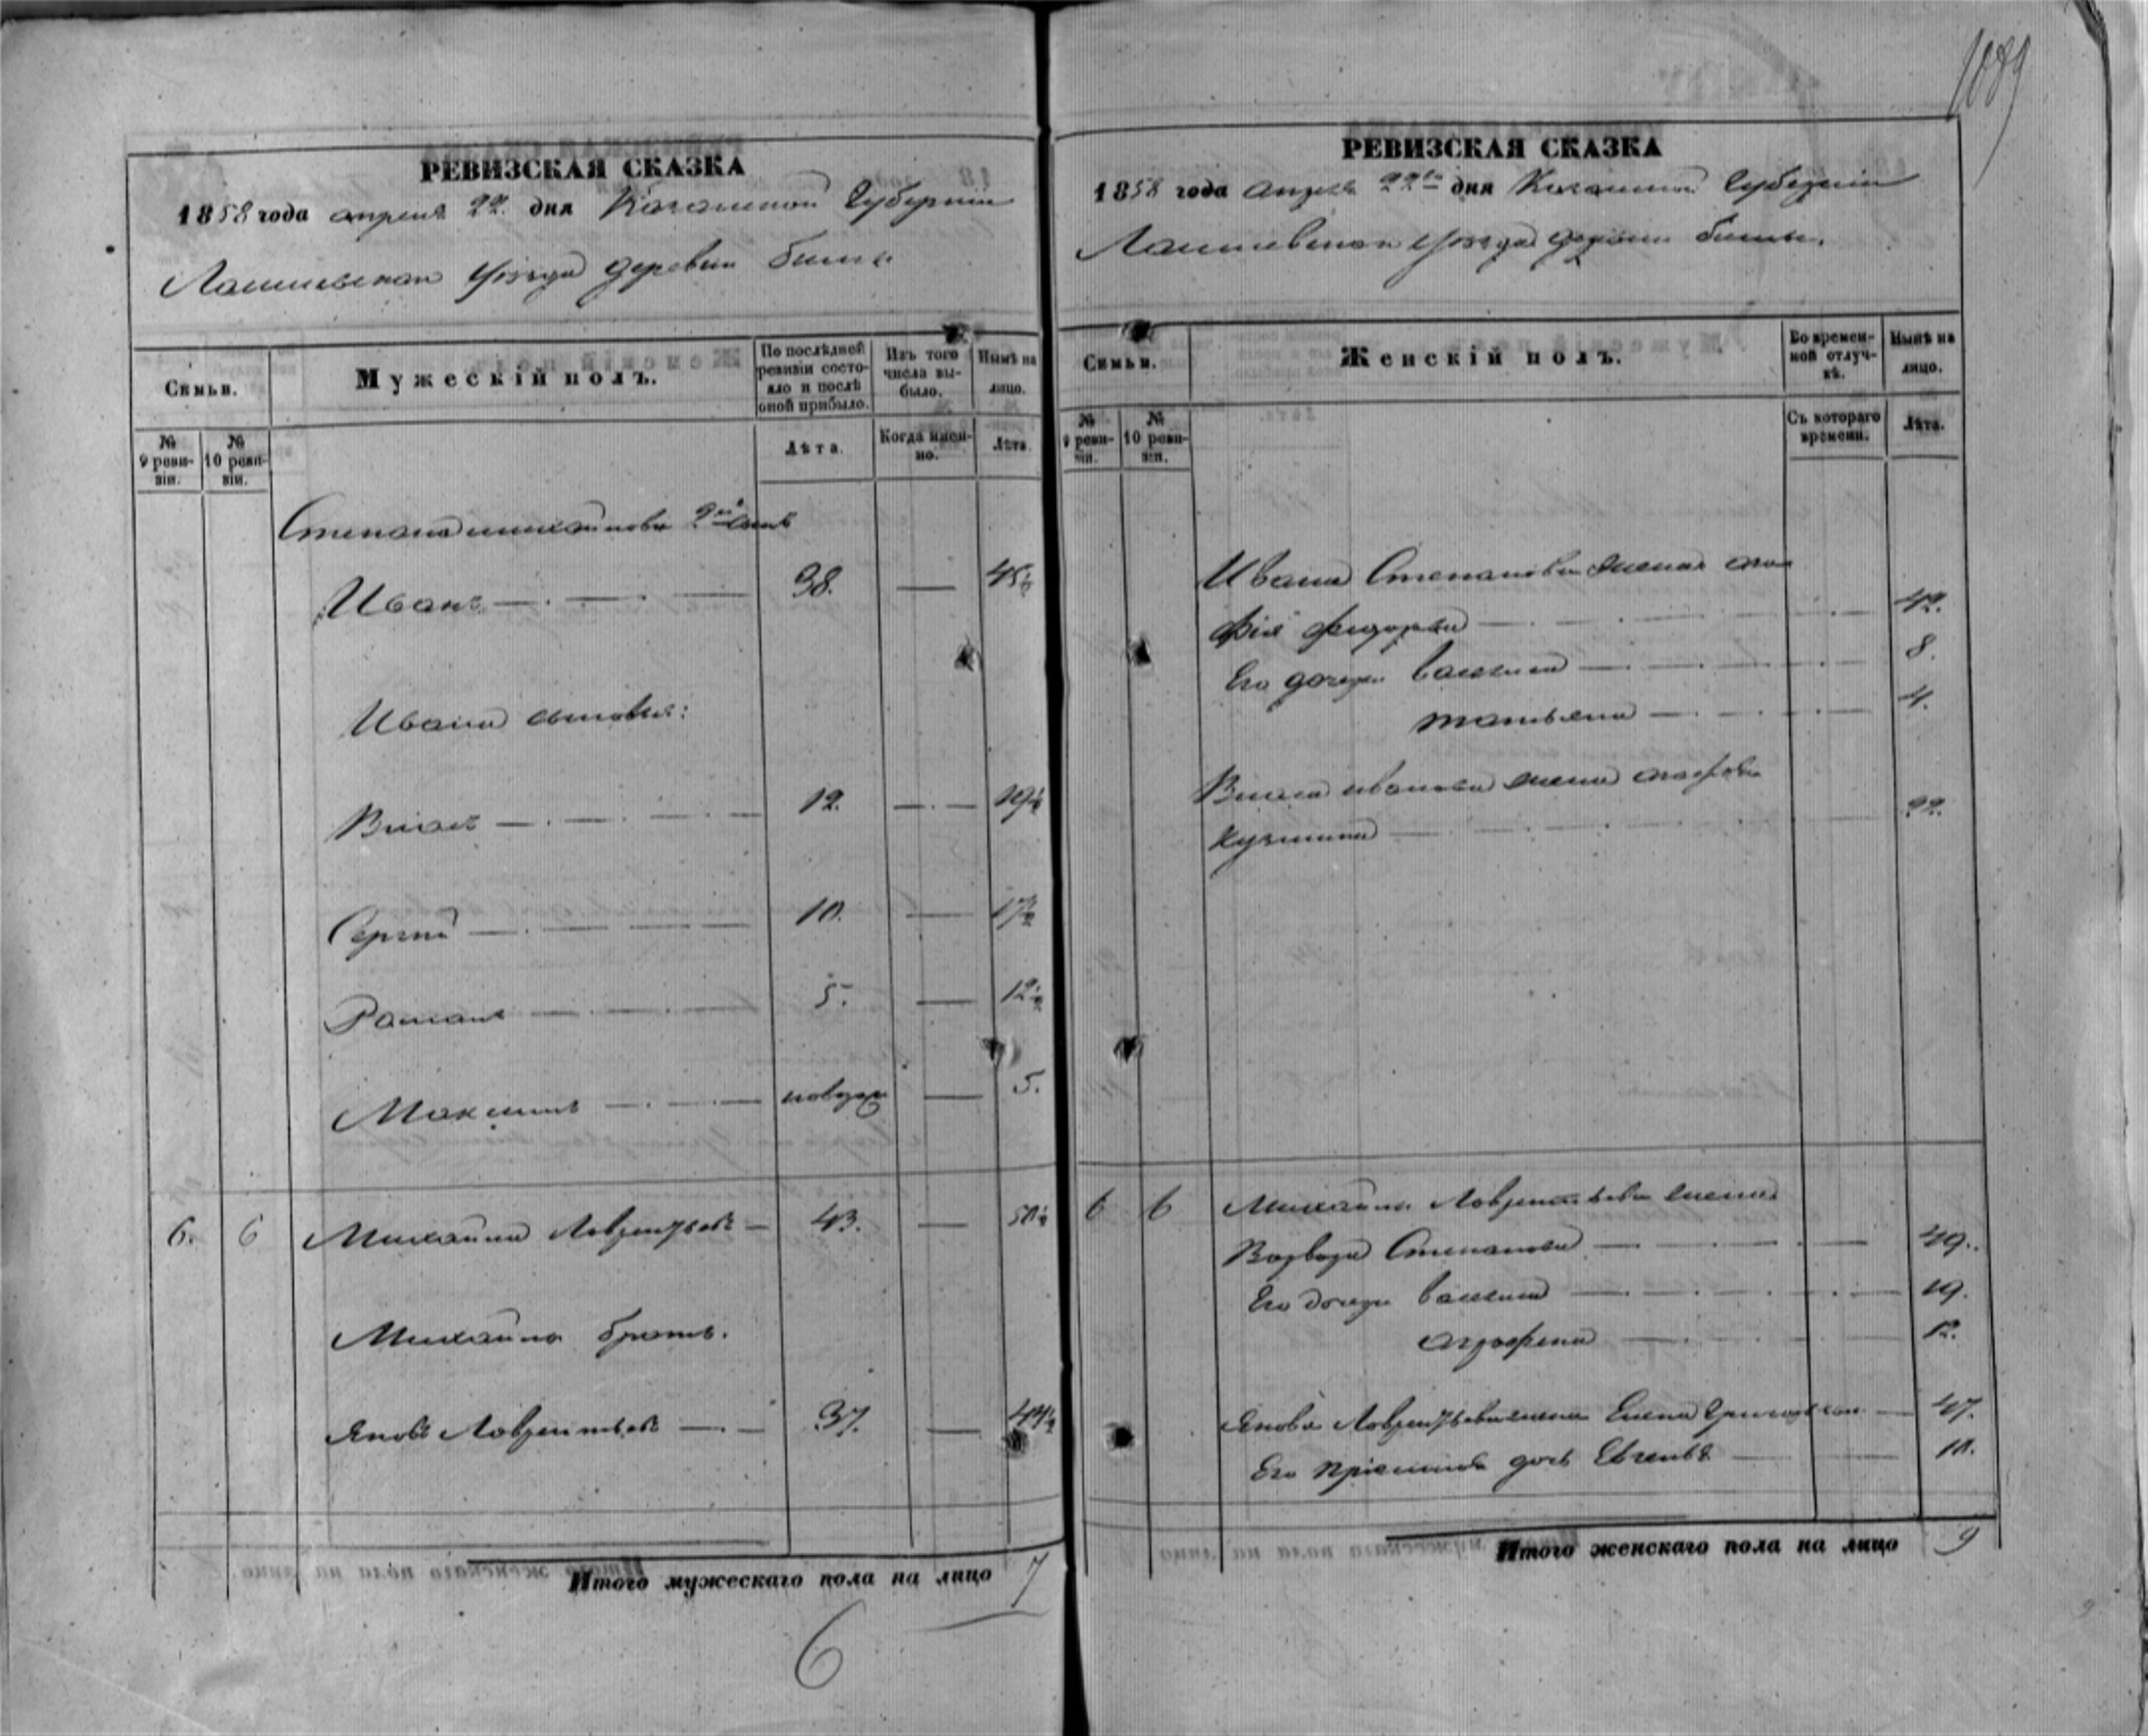 1089
РЕВИЗСКАЯ СКАЗКА
1858 года апреля 22 дня Казанской Губернии
Лаишевскаго уѣзда деревни
Семьи.
Мужескій полъ.
По послѣдней ревизіи состояло и послѣ оной прибыло.
Изъ того числа выбыло.
Нынѣ на лицо.
№ 9 ревизіи.
№ 10 ревизіи.
Лѣта.
Когда именно.
Лѣта.
Степана Михайлова 2й сынъ
Иванъ — 38. — 45½
Ивана сыновья:
12. — 19½
Сергей — 10. — 17½
Романъ — 5. — 12½
Максимъ — новорож — 5.
6. 6 Михайла Лаврентьевъ — 43. — 50½
Михайла братъ.
Яковъ Лаврентьевъ — 37. — 44½
Итого мужескаго пола на лицо 7
6
РЕВИЗСКАЯ СКАЗКА
1858 года апреля 22го дня Казанской Губернии
Лаишевскаго уѣзда деревни
Семьи.
Женскій полъ.
Во временной отлучкѣ.
Нынѣ на лицо.
№ 9 ревизіи.
№ 10 ревизіи.
Съ котораго времени.
Лѣта.
Ивана Степанова жена
42.
Его дочери 8.
Татьяна — 4.
Ивановa жена
Кузмина — 22.
6 6 Михайла Лаврентьева жена
Варвара Степанова — 49.
Его дочери 19.
Аграфена — 12.
Якова Лаврентьева жена Елена 47.
Его дочь 10.
Итого женскаго пола на лицо 9